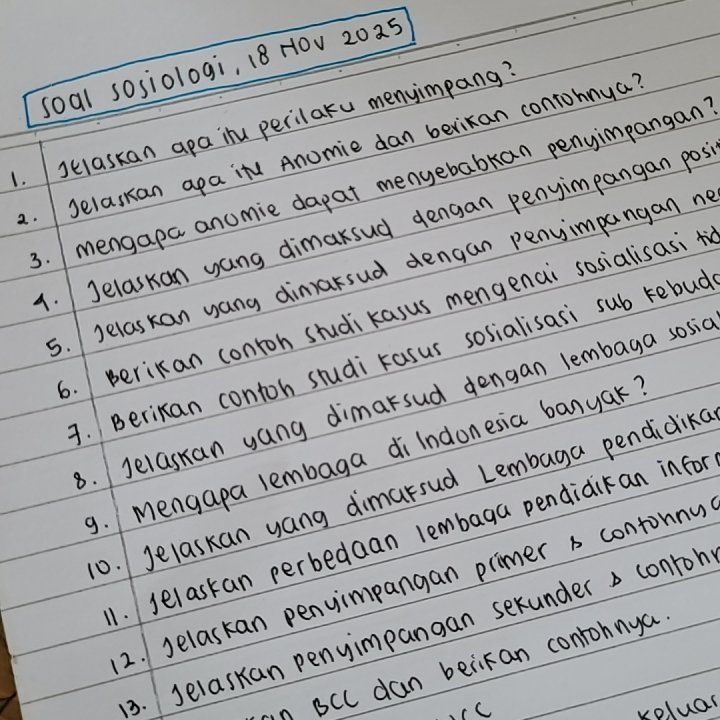 soal sosiologi, 18 Nov 2025
1. Jelaskan apa itu perilaku menyimpang?
2. Jelaskan apa itu Anomie dan berikan contohnya?
3. mengapa anomie dapat menyebabkan penyimpangan?
4. Jelaskan yang dimaksud dengan penyimpangan posit
5. Jelaskan yang dimaksud dengan penyimpangan ne
6. Berikan contoh studi kasus mengenai sosialisasi tid
7. Berikan contoh studi kasus sosialisasi sub kebuda
8. Jelaskan yang dimaksud dengan lembaga sosial
9. Mengapa lembaga di Indonesia banyak?
10. Jelaskan yang dimaksud Lembaga pendidikan
11. Jelaskan perbedaan lembaga pendidikan infor
12. Jelaskan penyimpangan primer & contohnya
13. Jelaskan penyimpangan sekunder & contohn
an BCC dan berikan contohnya.
CC keluar